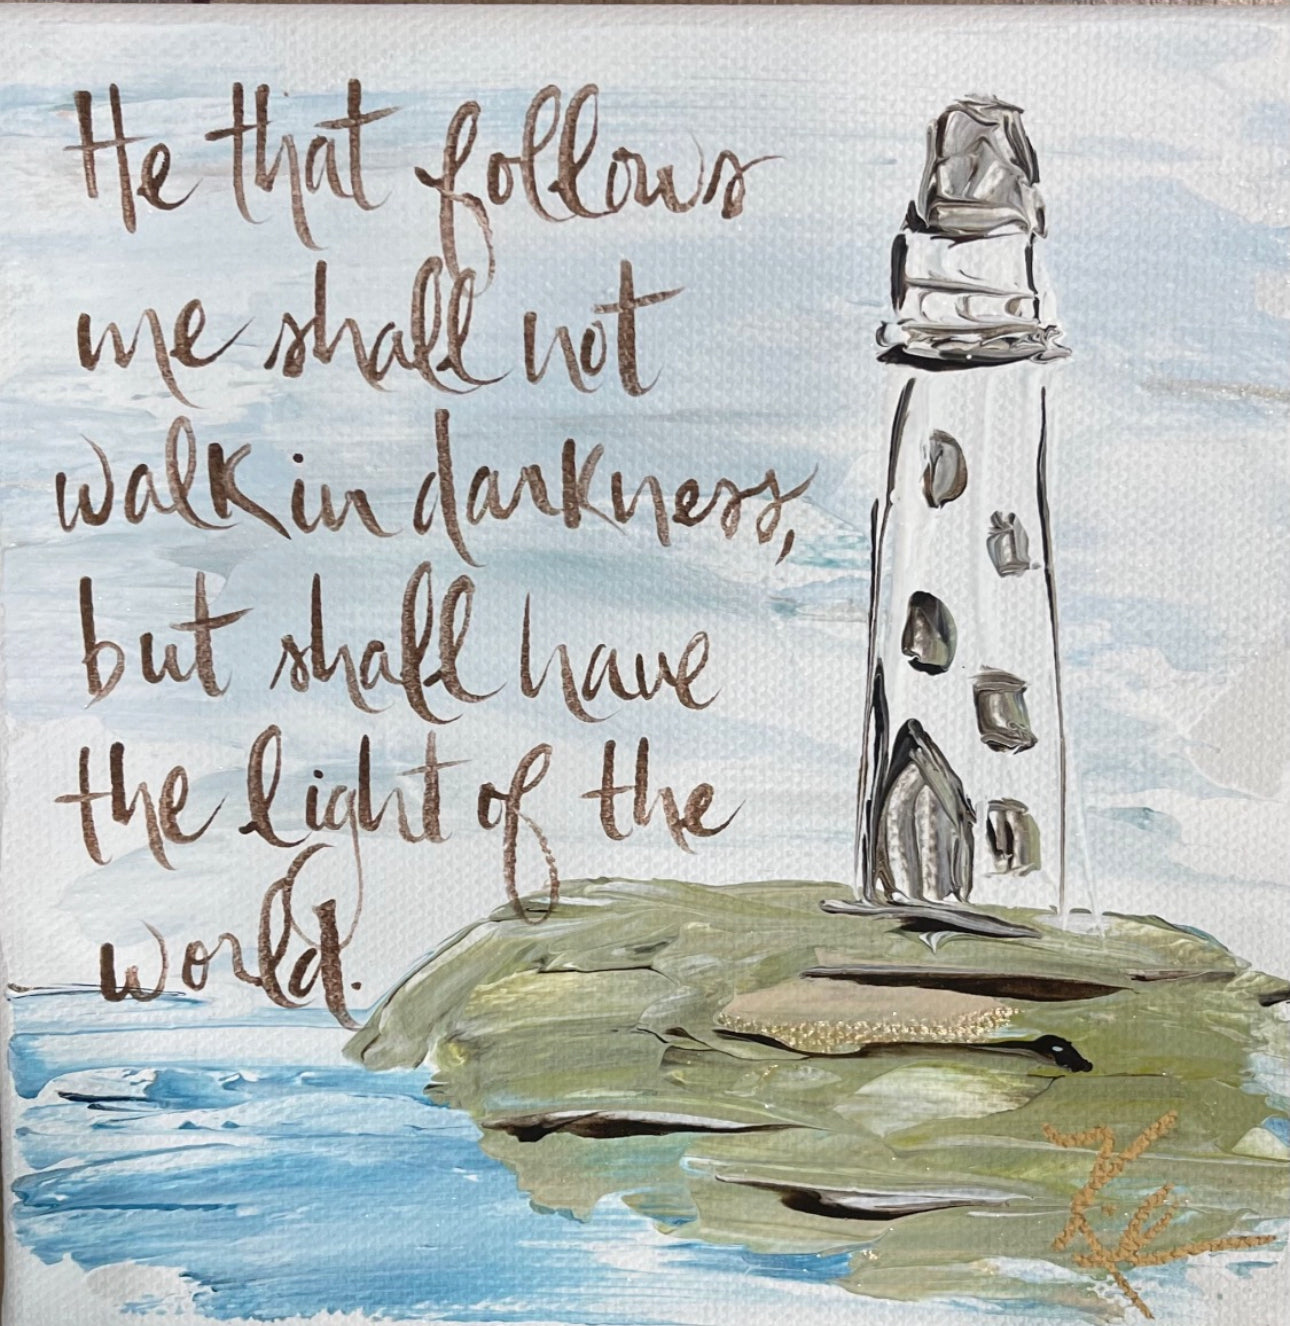 He that follows
me shall not
walk in darkness,
but shall have
the light of the
world.